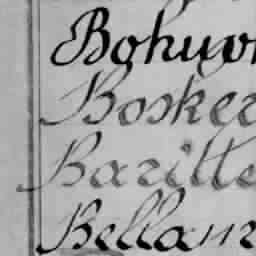 Bohuon
Bosker
Baritte
Bellam